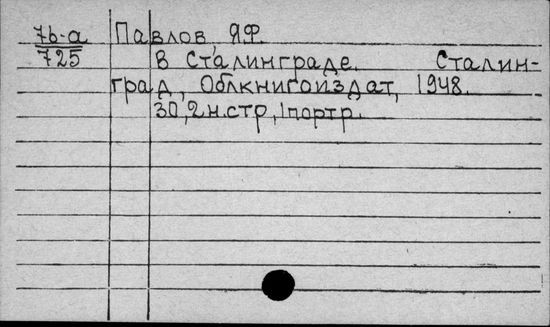 7б-а Павлов Я.Ф.
725 В Сталинграде. Сталин-
град, Облкнигоиздат, 1948.
30,2н.стр.,1портр.